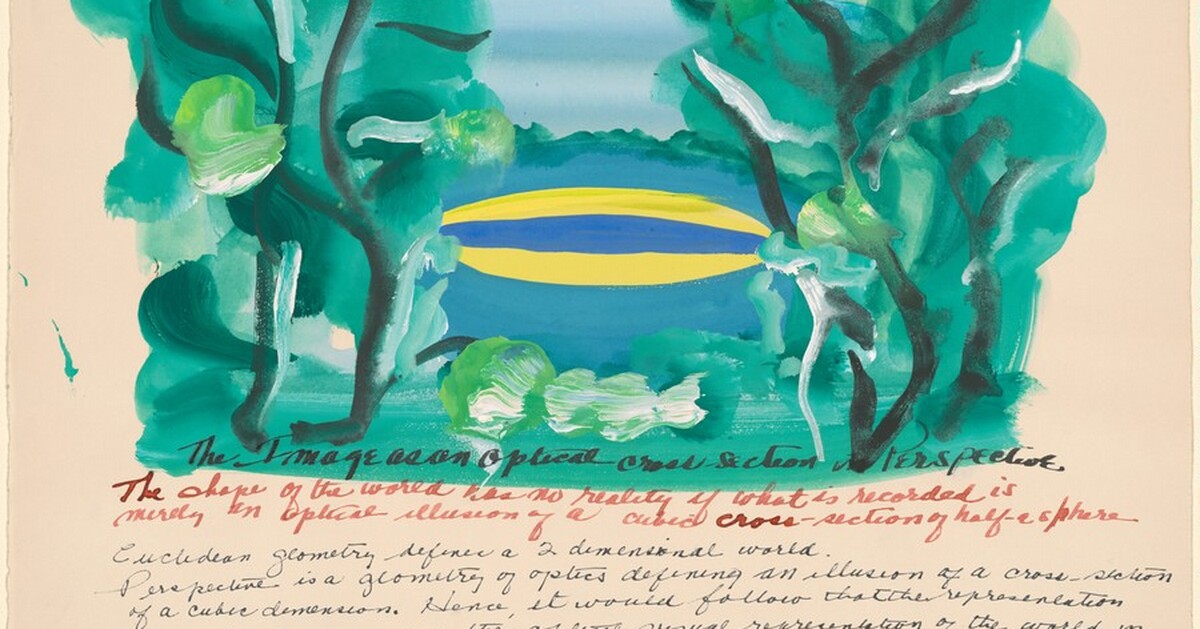 The Image as an optical cross section in Perspective.
The shape of the world has no reality if what is recorded is
merely an optical illusion of a cubic cross-section of half-a sphere
Euclidean geometry defines a 2 dimensional world.
Perspective is a geometry of optics defining an illusion of a cross-section
of a cubic dimension. Hence, it would follow that the representation
visual representation of the world in